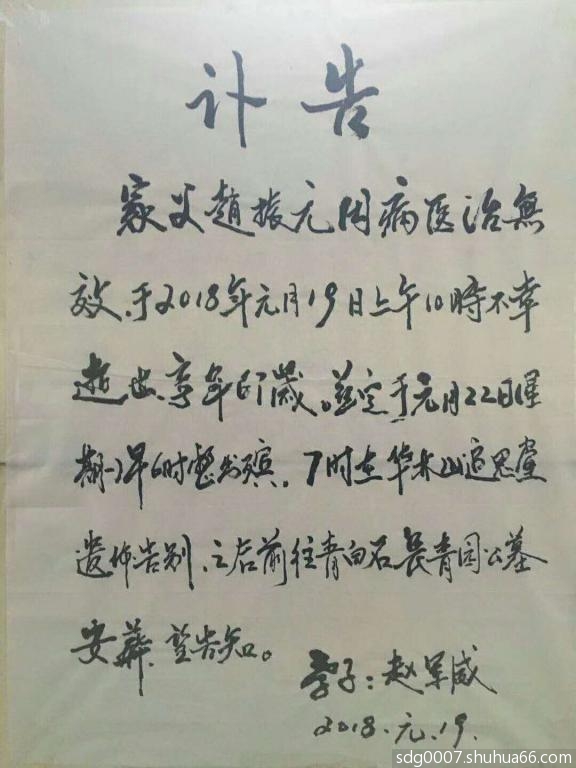 讣告
家父趙振元因病医治無
效,于2018年元月19日上午10時不幸
逝世,享年67歲。兹定于元月22日星
期一早6时整出殡,7时在华林山追思堂
遗体告别,之后前往青白石長青园公墓
安葬,望告知。
孝子:赵军威
2018.元.19.
sdg0007.shuhua66.com